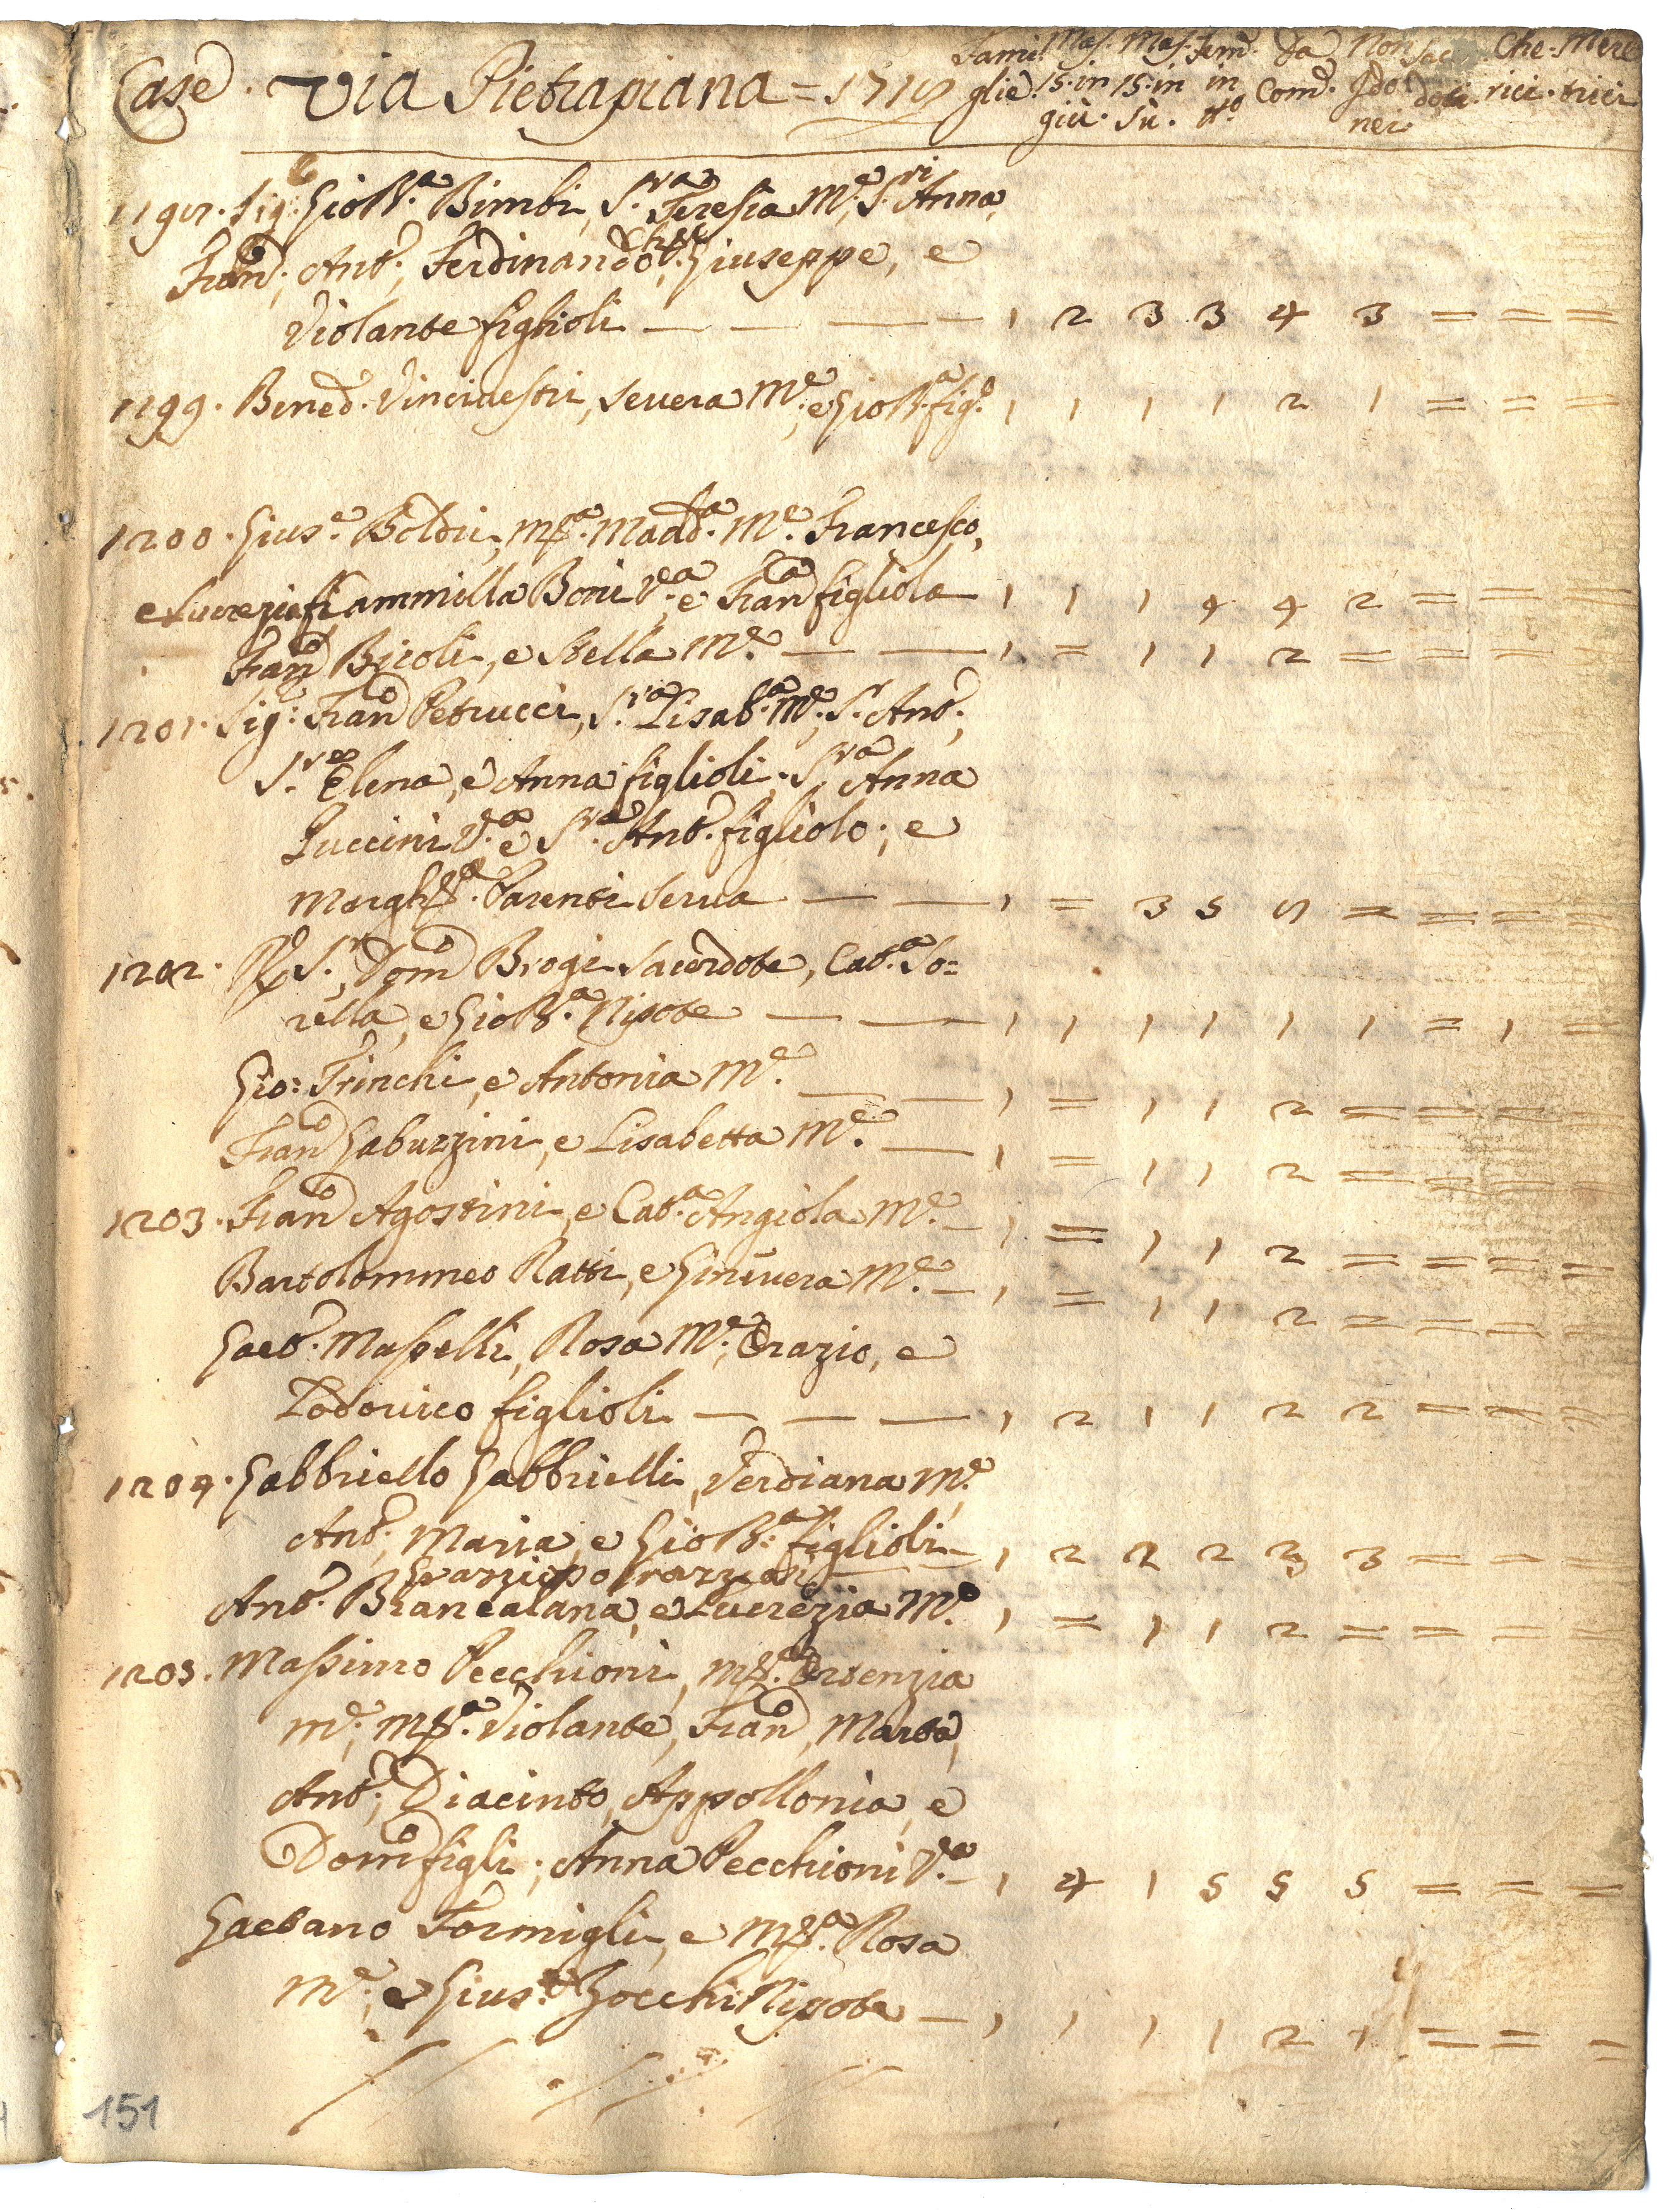 Case. Via Pietrapiana = 1718
Fami glie. Mas. 15. in giù. Mas. 15. in Sù. Fem. in tto Da Com. Non Idonei. Sac dozi. Che-rici. Mere trici
1198. Sig. Gio B.a Bimbi, S.ra Teresia M.e, S.ri Anna,
Fran.o, Ant.o, Ferdinando, Giuseppe, e
Violante figlioli — — — — 1 2 3 3 4 3 = = =
1199. Bened.o Vincinestri, Severa M.e, e Gio B.a fig.o 1 1 1 1 2 1 = = =
1200. Gius.e Boldri, M.a Madd.a M.e Francesco,
e Lucrezia fi Cammilla Boni V.a e Fran.a figliola 1 1 1 4 4 2 = = =
Fran.o Bicoli, e Stella M.e — — 1 = 1 1 2 = = = =
1201. Sig. Fran.o Petrucci, S.ra Lisab.a M.e, S.r Ant.o,
S.re Elena, e Anna figlioli. S.ra Anna
Puccini V.a e S.r Ant.o figliolo; e
Margh.a Parenti Serva — — 1 = 3 5 8 = = = =
1202. R. S.r Dom.o Brogi Sacerdote, Cat.a So=
rella, e Gio B.a Nipote — — 1 1 1 1 1 1 = 1 =
Gio: Trinchi, e Antonia M.e — — 1 = 1 1 2 = = = =
Fran.o Gaburrini, e Lisabetta M.e — 1 = 1 1 2 = = = =
1203. Fran.o Agostini e Cat.a Angiola M.e — 1 = 1 1 2 = = = =
Bartolommeo Ratti, e Ginevera M.e — 1 = 1 1 2 = = = =
Gaet.o Maselli, Rosa M.e, Orazio, e
Lodovico figlioli — — — 1 2 1 1 2 2 = = =
1204. Gabbriello Gabbrielli, Verdiana M.e
Ant.o, Maria, e Gio B.a figlioli — 1 2 2 2 3 3 = = =
Ant.o Brancalana, e Lucrezia M.e 1 = 1 1 2 = = = =
1205. Massimo Pecchioni, M.a Ortenzia
M.e, M.a Violante, Fran.o, Marta,
Ant.o, Diacinto, Appollonia, e
Dom.o figli; Anna Pecchioni V.a — 1 4 1 5 5 5 = = =
Gaetano Formigli, e M.a Rosa
M.e, e Gius.e Zocchi Nipote — 1 1 1 1 2 1 = = =
151